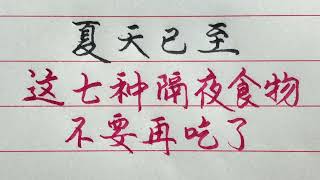 夏天已至
这七种隔夜食物
不要再吃了